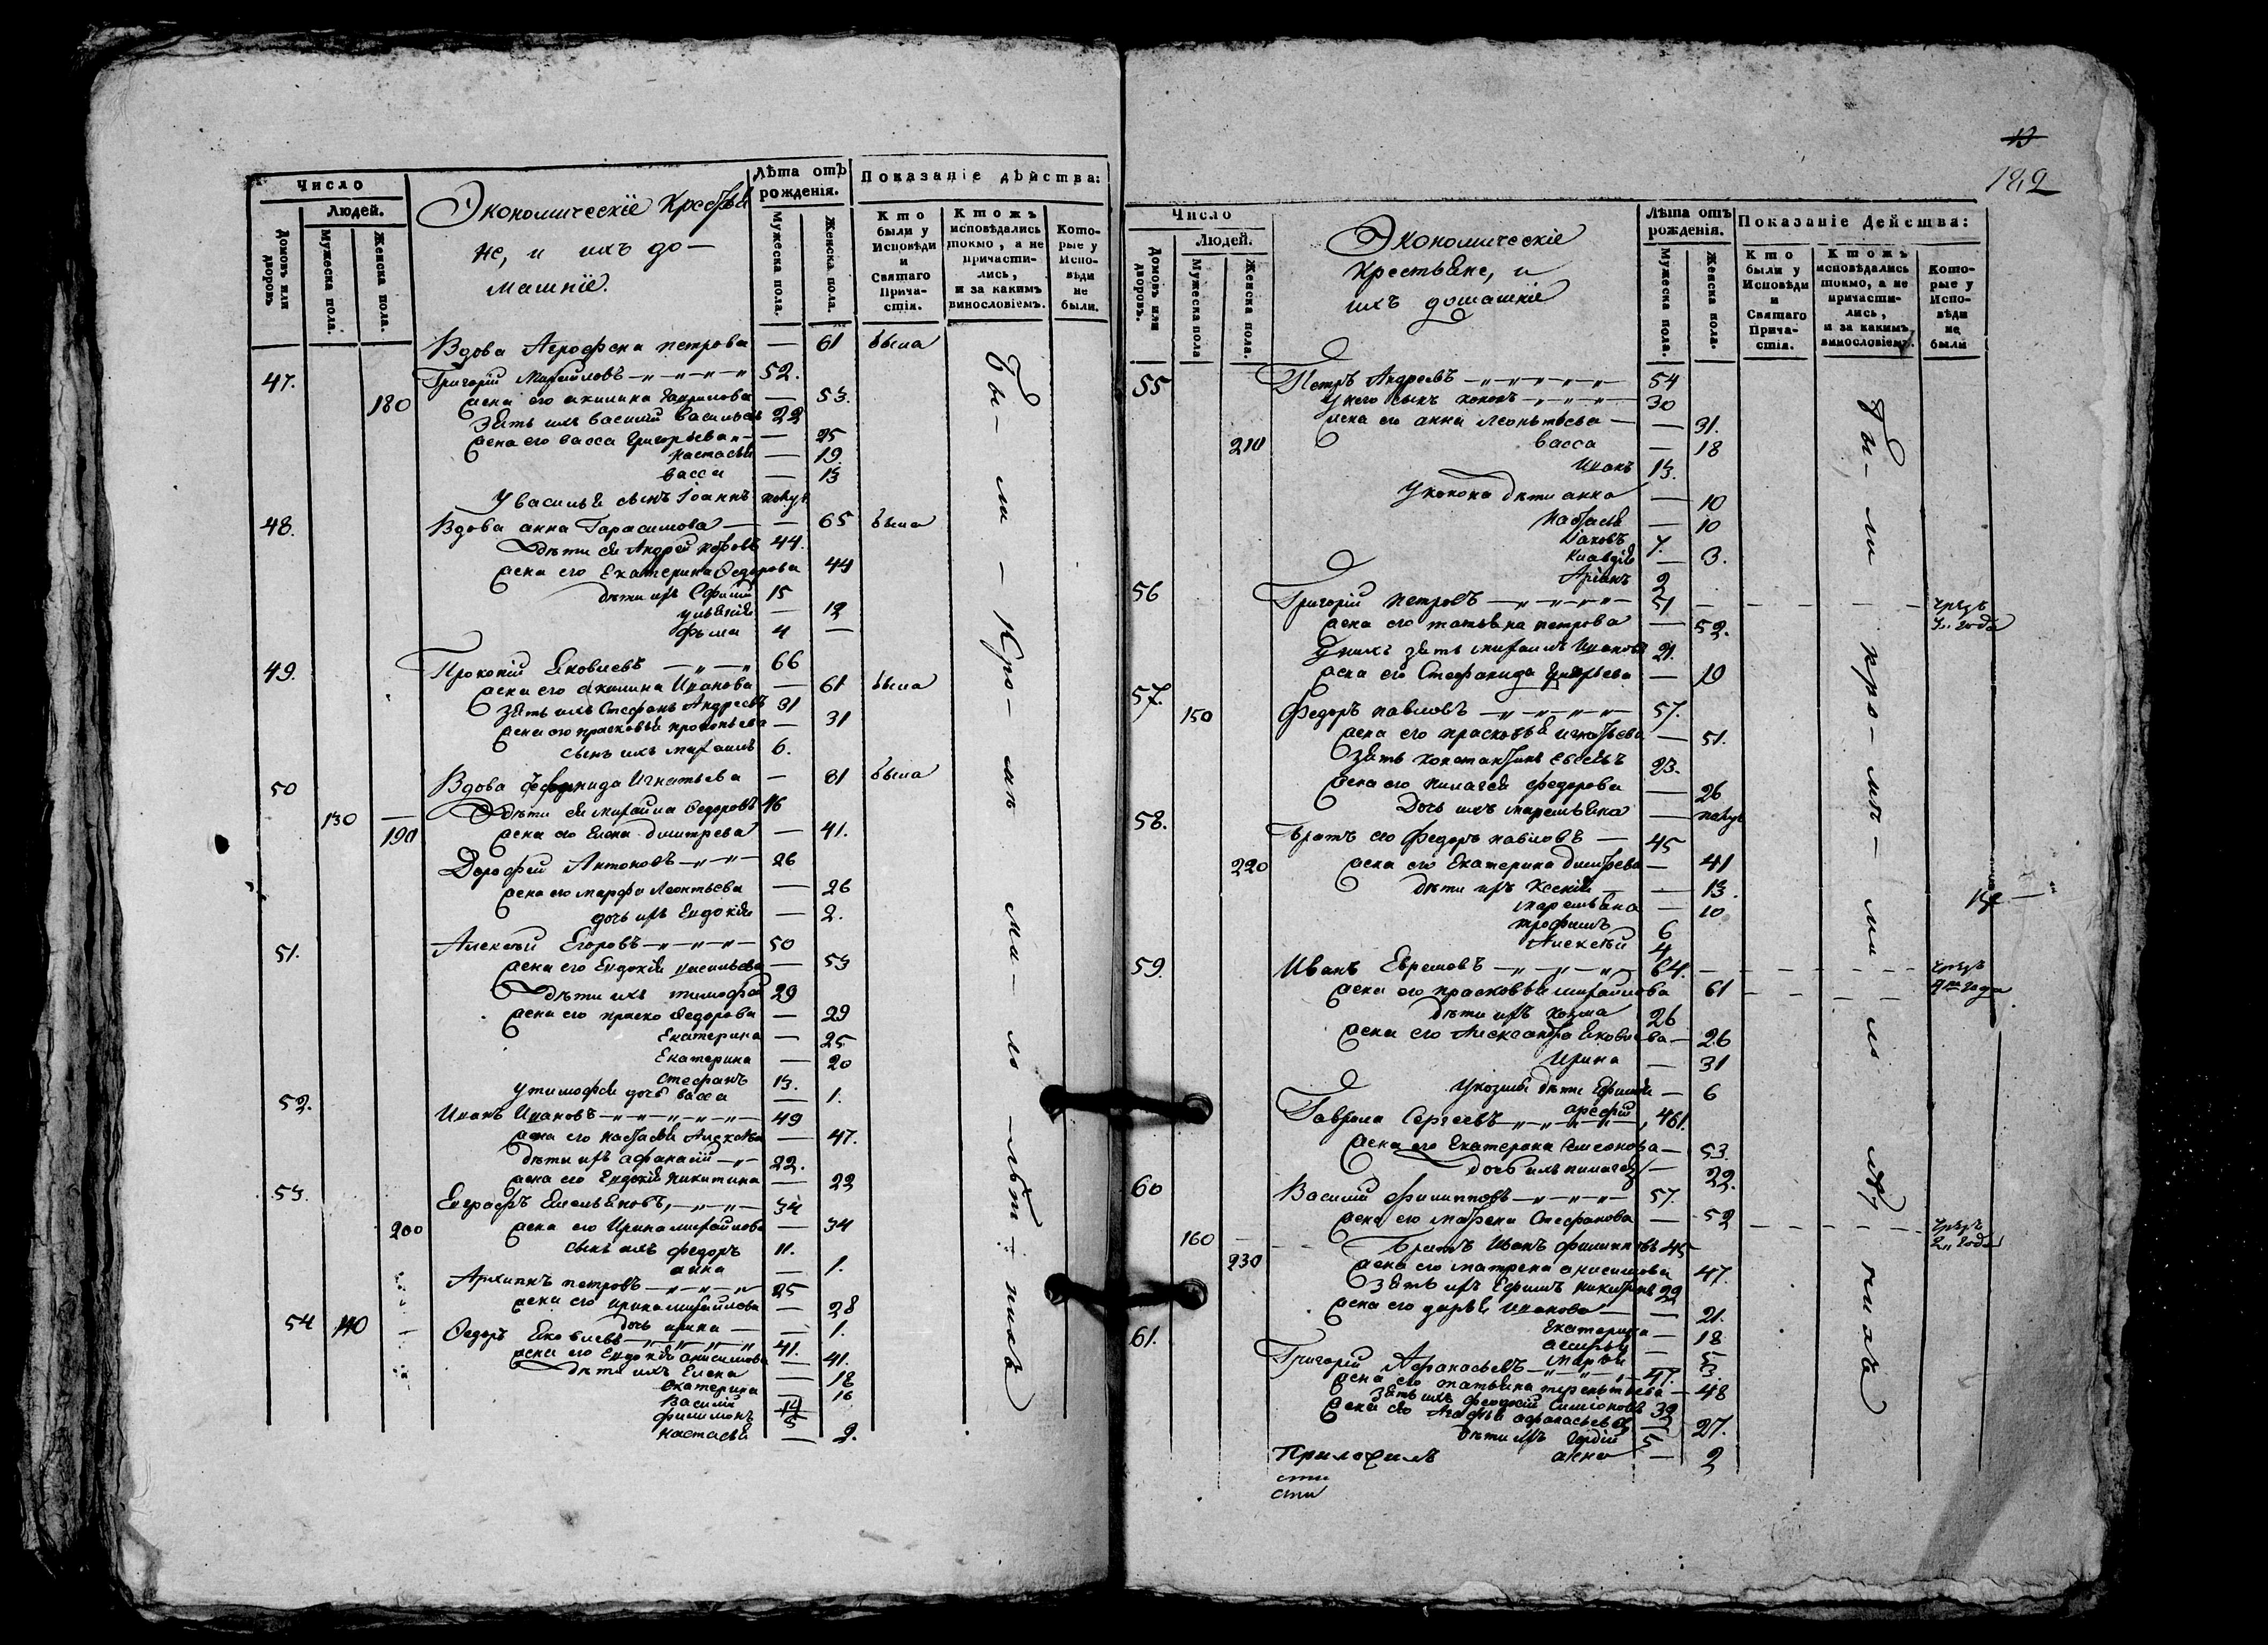 Число
Людей.
Домовъ или дворовъ
Мужеска пола.
Женска пола.
Экономическіе Крестья
не, и ихъ до-
машніе.
Лѣта отъ рожденія.
Мужеска пола.
Женска пола.
Показаніе дѣйства:
Кто были у Исповѣди и Святаго Прича-стія.
Ктожъ исповѣдались токмо, а не причасти-лись, и за какимъ винословіемъ.
Кото-рые у Испо-вѣди не были.
Вдова петрова — 61 была
47. Григорій Михайловъ 52.
180 жена его акилина Гаврилова — 53.
зять ихъ василій васильевъ 22
жена его васса Григорьева — 25
настасья — 19
васса — 13
У василья сынъ Іоаннъ
48. Вдова анна Гарасимова — 65 была
дѣти ея Андрей 44.
жена его Екатерина Ѳедорова 44
дѣти ихъ Ефимъ 15
— 12
Фома 4 —
49. Прокопій Яковлевъ 66
жена его акилина Иванова — 61 была
зять ихъ Стефанъ Андреевъ 31
жена его прасковья прокопьева — 31
сынъ ихъ михаилъ 6.
50 Вдова Игнатьева — 81 была
130 — дѣти ея михайла Ѳедоровъ 46
190 жена его Елена дмитрева — 41.
Дорофей Антоновъ 26
жена его марфа Леонтьева — 26
дочь ихъ Евдокія — 2.
51. Алексѣй Егоровъ 50
жена его Евдокія васильева — 53
дѣти ихъ тимофей 29
жена его праско Ѳедорова — 29
Екатерина — 25
Екатерина — 20
Стефанъ 13.
у тимофея дочь васса — 1.
52. Иванъ Ивановъ 49
жена его настасья Алексѣева — 47.
дѣти ихъ афанасій 22.
жена его Евдокія никитина — 22
53. Евграфъ Емельяновъ 34
200 жена его Ирина михайлова — 34
сынъ ихъ федоръ 11.
анна — 1.
Архипъ петровъ 25
жена его ирина михайлова — 28
дочь ирина — 1.
54 140 Ѳедоръ Яковлевъ 41.
жена его Евдокія анисимова — 41.
дѣти ихъ Елена — 18
екатерина — 16
Василій 14
филимонъ 5
настасья — 2.
Бы-ли-кро-мѣ ма-ло-лѣт-нихъ
13
182
Число
Людей.
Домовъ или дворовъ.
Мужеска пола
Женска пола.
Экономическіе
крестьяне, и
ихъ домашніе
Лѣта отъ рожденія.
Мужеска пола.
Женска пола.
Показаніе Дейсшва:
Кто были у Исповѣди и Святаго Прича-стія.
Ктожъ исповѣдались токмо, а не причасти-лись, и за какимъ винословіемъ.
Кото-рые у Испо-вѣди не были
55 Петръ Андреевъ 54
У него сынъ кононъ 30
жена его анна леонтьева — 31.
210 васса — 18
Иванъ 13.
У конона дѣти анна — 10
настасья — 10
Іаковъ 7.
Клавдія — 3.
2
56 Григорій петровъ 51 чрезъ
жена его татьяна петрова — 52. года
У нихъ зять михаилъ Ивановъ 21.
жена его Стефанида Григорьева — 19
57. 150 Федоръ павловъ 57.
жена его прасковья игнатьева — 51.
зять константинъ 23.
жена его пелагея федорова — 26
Дочь ихъ маремьяна —
58. Братъ его федоръ павловъ 45
220 жена его Екатерина дмитрева — 41
дѣти ихъ Ксенія — 13.
маремьяна — 10
трофимъ 6
Алексѣй 4
59. Иванъ Ефремовъ 64. чрезъ
жена его прасковья михайлова 61 года
дѣти ихъ козма 26
жена его Александра Яковлева — 26
Ирина — 31
У козмы дѣти — 6
арефій
Гаврила Сергеевъ
жена его Екатерина симонова — 53.
дочь ихъ пелагея — 22.
60 Василій филипповъ 57.
жена его матрена Стефанова — 52 чрезъ
160 Братъ Иванъ филипповъ 45 2 года
230 жена его матрена анисимова 47.
зять ихъ Ефимъ никитинъ 22
жена его дарья Иванова — 21.
Екатерина — 18
марья
61. Григорій Афанасьевъ 47.
жена его татьяна терентьева — 48
зять ихъ феодосій Симеоновъ 32
жена его Агафья афанасьева — 27.
дѣти ихъ 5
анна — 2
Бы-ли кро-мѣ-ма ло лѣт нихъ